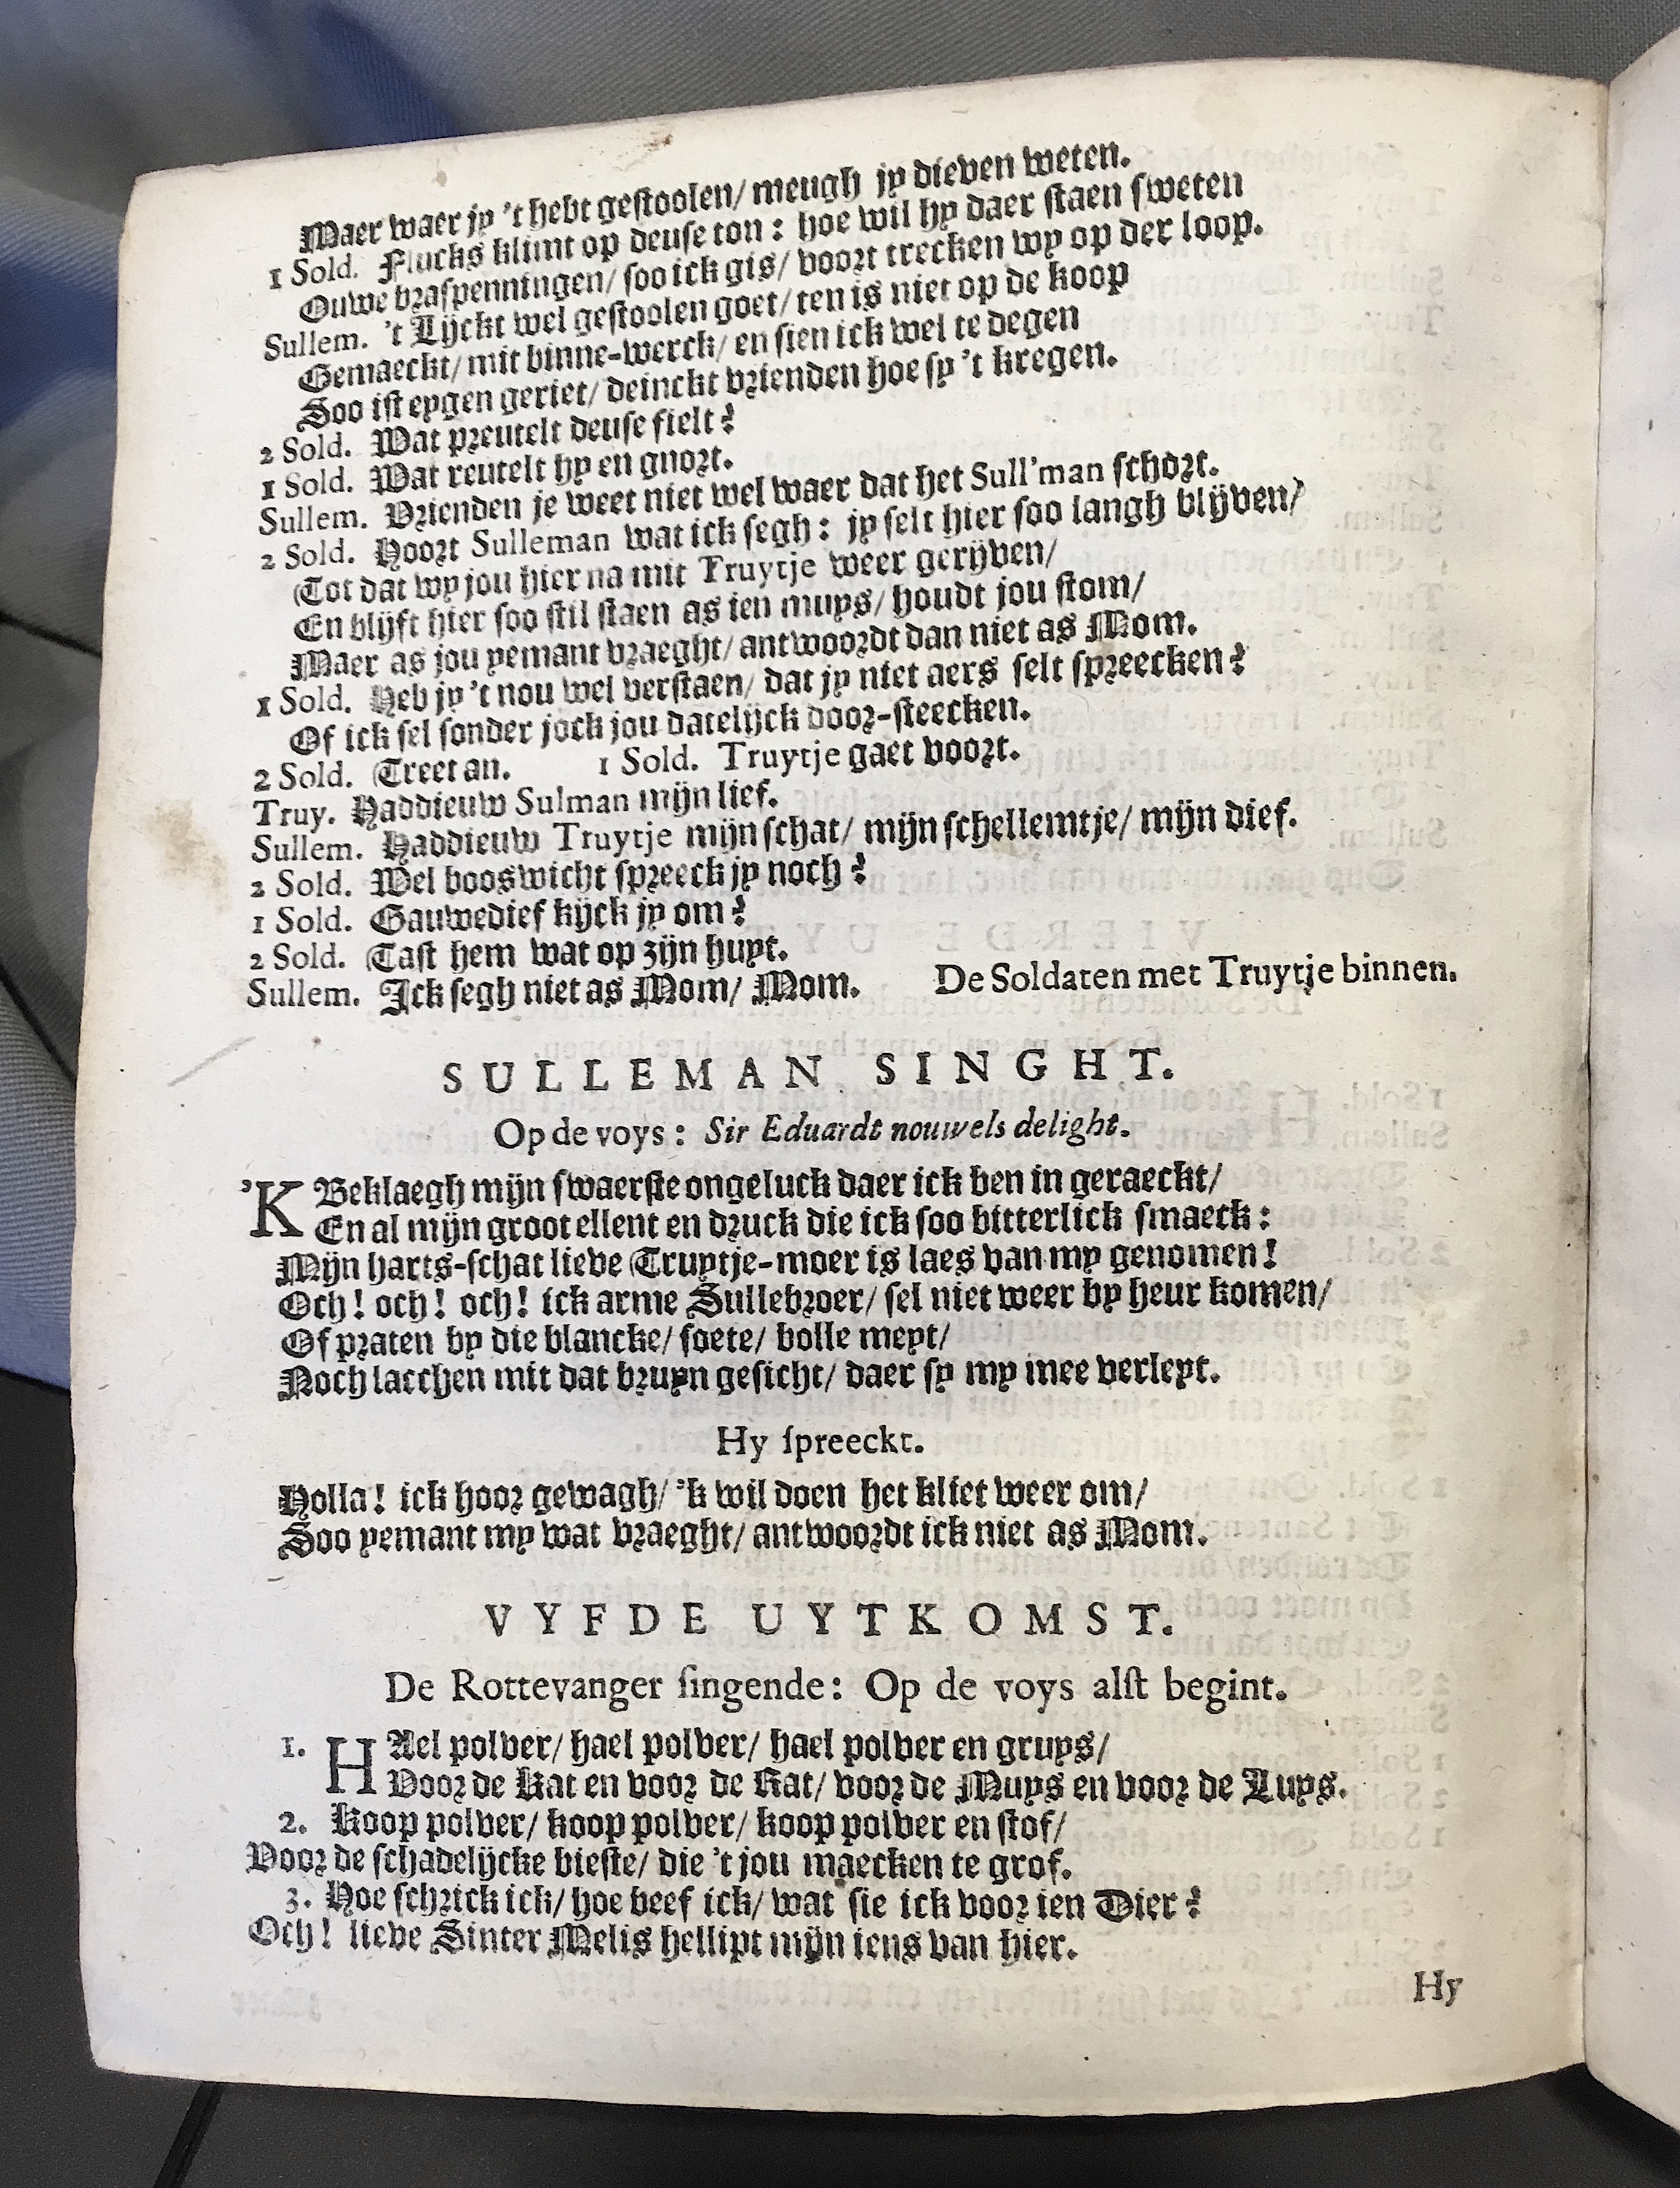 Maer waer jy 't hebt gestoolen/ meugh jy dieven weten.
1 Sold. Flucks klimt op deuse ton : hoe wil hy daer staen sweten
Ouwe braspenningen/ soo ick gis/ voort trecken wy op der loop.
Sullem. 't Lijckt wel gestoolen goet/ ten is niet op de koop
Gemaeckt/ mit binne-werck/ en sien ick wel te degen
Soo ist eygen geriet/ deinckt vrienden hoe sy 't kregen.
2 Sold. Wat preutelt deuse fielt?
1 Sold. Wat reutelt hy en gnort.
Sullem. Vrienden je weet niet wel waer dat het Sull'man schort.
2 Sold. Hoort Sulleman wat ick segh : jy selt hier soo langh blijven/
Tot dat wy jou hier na mit Truytje weer gerijven/
En blijft hier soo stil staen as ien muys/ houdt jou stom/
Maer as jou yemant vraeght/ antwoordt dan niet as Mom.
1 Sold. Heb jy 't nou wel verstaen/ dat jy niet aers selt spreecken?
Of ick sel sonder jock jou datelijck door-steecken.
2 Sold. Treet an. 1 Sold. Truytje gaet voort.
Truy. Haddieuw Sulman mijn lief.
Sullem. Haddieuw Truytje mijn schat/ mijn schellemtje/ mijn dief.
2 Sold. Wel booswicht spreeck jy noch?
1 Sold. Gauwedief kijck jy om?
2 Sold. Tast hem wat op zijn huyt.
Sullem. Ick segh niet as Mom/ Mom. De Soldaten met Truytje binnen.
SULLEMAN SINGHT.
Op de voys : Sir Eduardt nouwels delight.
'K Beklaegh mijn swaerste ongeluck daer ick ben in geraeckt/
En al mijn groot ellent en druck die ick soo bitterlick smaeck :
Mijn harts-schat lieve Truytje-moer is laes van my genomen!
Och! och! och! ick arme Sullebroer/ sel niet weer by heur komen/
Of praten by die blancke/ soete/ bolle meyt/
Noch lacchen mit dat bruyn gesicht/ daer sy my mee verleyt.
Hy spreeckt.
Holla! ick hoor gewagh/ 'k wil doen het kliet weer om/
Soo yemant my wat vraeght/ antwoordt ick niet as Mom.
VYFDE UYTKOMST.
De Rottevanger singende : Op de voys alst begint.
1. HAel polver/ hael polver/ hael polver en gruys/
Voor de Kat en voor de Rat/ voor de Muys en voor de Luys.
2. Koop polver/ koop polver/ koop polver en stof/
Voor de schadelijcke bieste/ die 't jou maecken te grof.
3. Hoe schrick ick/ hoe beef ick/ wat sie ick voor ien Dier?
Och! lieve Sinter Melis hellipt mijn iens van hier.
Hy